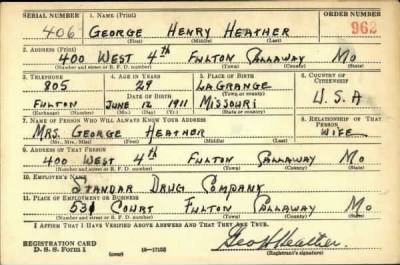 SERIAL NUMBER 1. NAME (Print) ORDER NUMBER
406 GEORGE HENRY HEATHER 962
(First) (Middle) (Last)
2. ADDRESS (Print)
400 WEST 4th FULTON CALLAWAY MO
(Number and street or R. F. D. number) (Town) (County) (State)
3. TELEPHONE 4. AGE IN YEARS 5. PLACE OF BIRTH 6. COUNTRY OF CITIZENSHIP
805 29 LAGRANGE
DATE OF BIRTH (Town or county)
FULTON JUNE 12 1911 MISSOURI U.S.A
(Exchange) (Number) (Mo.) (Day) (Yr.) (State or country)
7. NAME OF PERSON WHO WILL ALWAYS KNOW YOUR ADDRESS 8. RELATIONSHIP OF THAT PERSON
MRS. GEORGE HEATHER WIFE
(Mr., Mrs., Miss) (First) (Middle) (Last)
9. ADDRESS OF THAT PERSON
400 WEST 4th FULTON CALLAWAY MO
(Number and street or R. F. D. number) (Town) (County) (State)
10. EMPLOYER'S NAME
STANDAR DRUG COMPANY
11. PLACE OF EMPLOYMENT OR BUSINESS
COURT FULTON CALLAWAY MO
(Number and street or R. F. D. number) (Town) (County) (State)
I AFFIRM THAT I HAVE VERIFIED ABOVE ANSWERS AND THAT THEY ARE TRUE.
REGISTRATION CARD
D. S. S. Form 1 (over) 16-17105 Geo H Heather
(Registrant's signature)